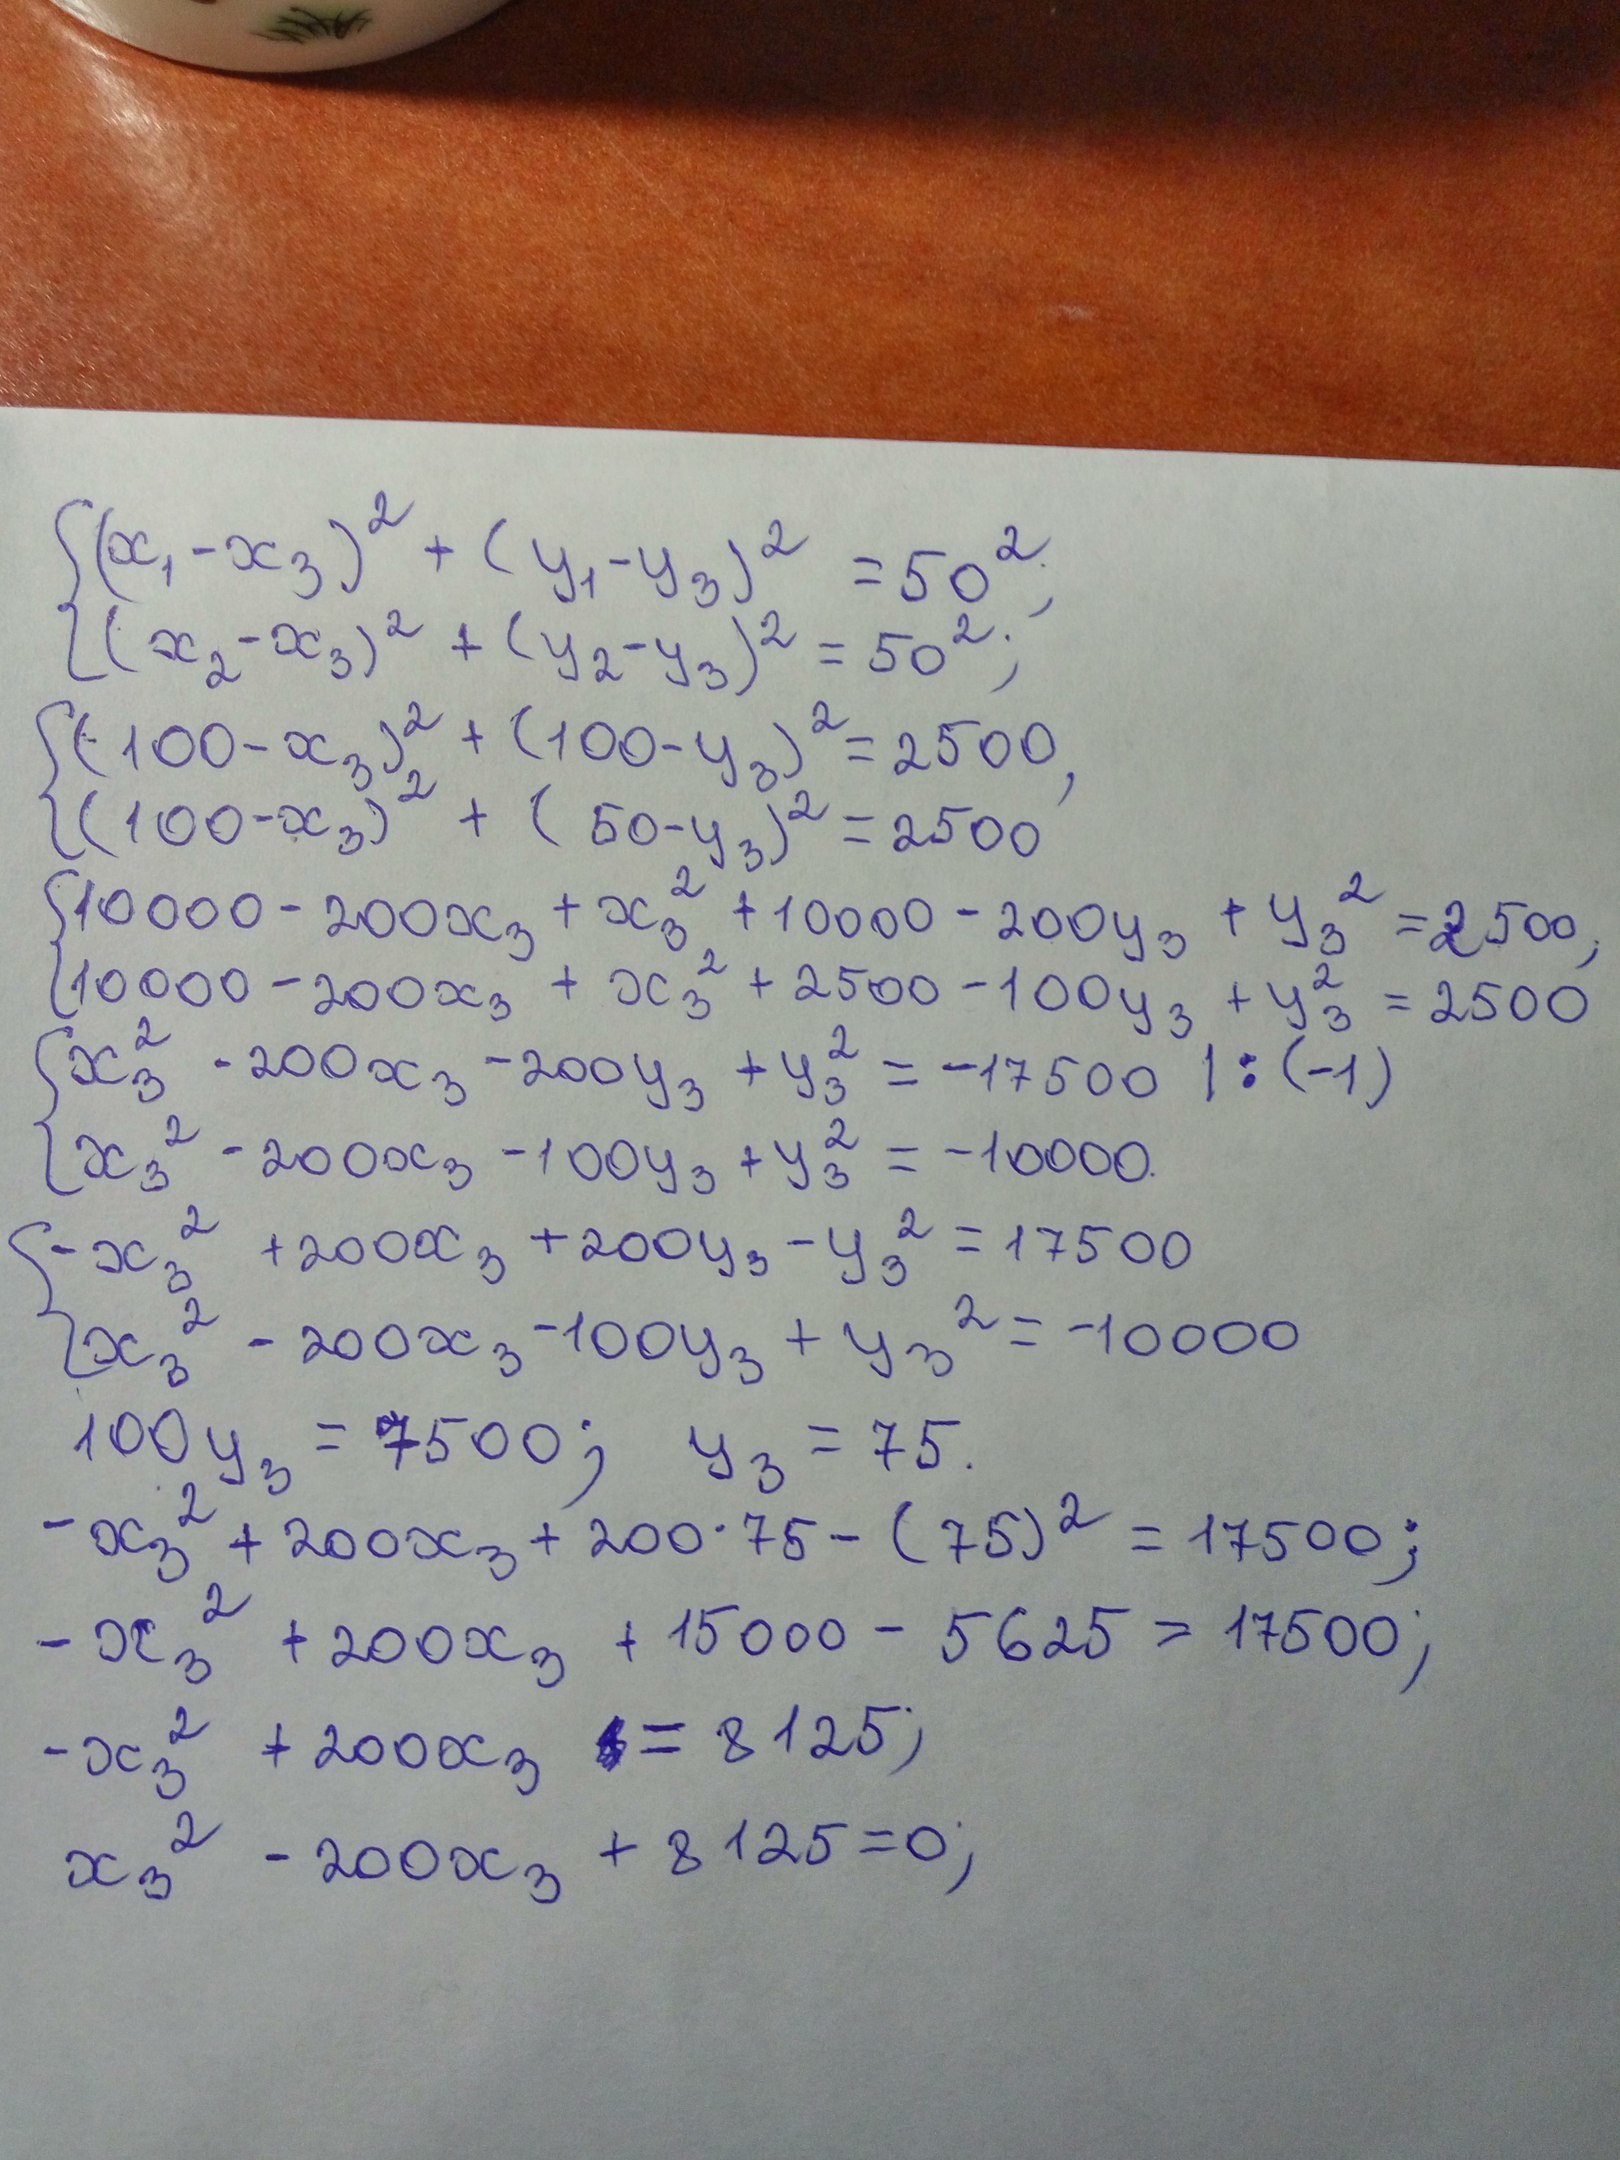 {(x₁-x₃)² + (y₁-y₃)² = 50²;
{(x₂-x₃)² + (y₂-y₃)² = 50²;
{(100-x₃)² + (100-y₃)² = 2500,
{(100-x₃)² + (50-y₃)² = 2500
{10000 - 200x₃ + x₃² + 10000 - 200y₃ + y₃² = 2500,
{10000 - 200x₃ + x₃² + 2500 - 100y₃ + y₃² = 2500
{x₃² - 200x₃ - 200y₃ + y₃² = -17500 | : (-1)
{x₃² - 200x₃ - 100y₃ + y₃² = -10000.
{-x₃² + 200x₃ + 200y₃ - y₃² = 17500
{x₃² - 200x₃ - 100y₃ + y₃² = -10000
100y₃ = 7500; y₃ = 75.
-x₃² + 200x₃ + 200·75 - (75)² = 17500;
-x₃² + 200x₃ + 15000 - 5625 = 17500;
-x₃² + 200x₃ = 8125;
x₃² - 200x₃ + 8125 = 0;